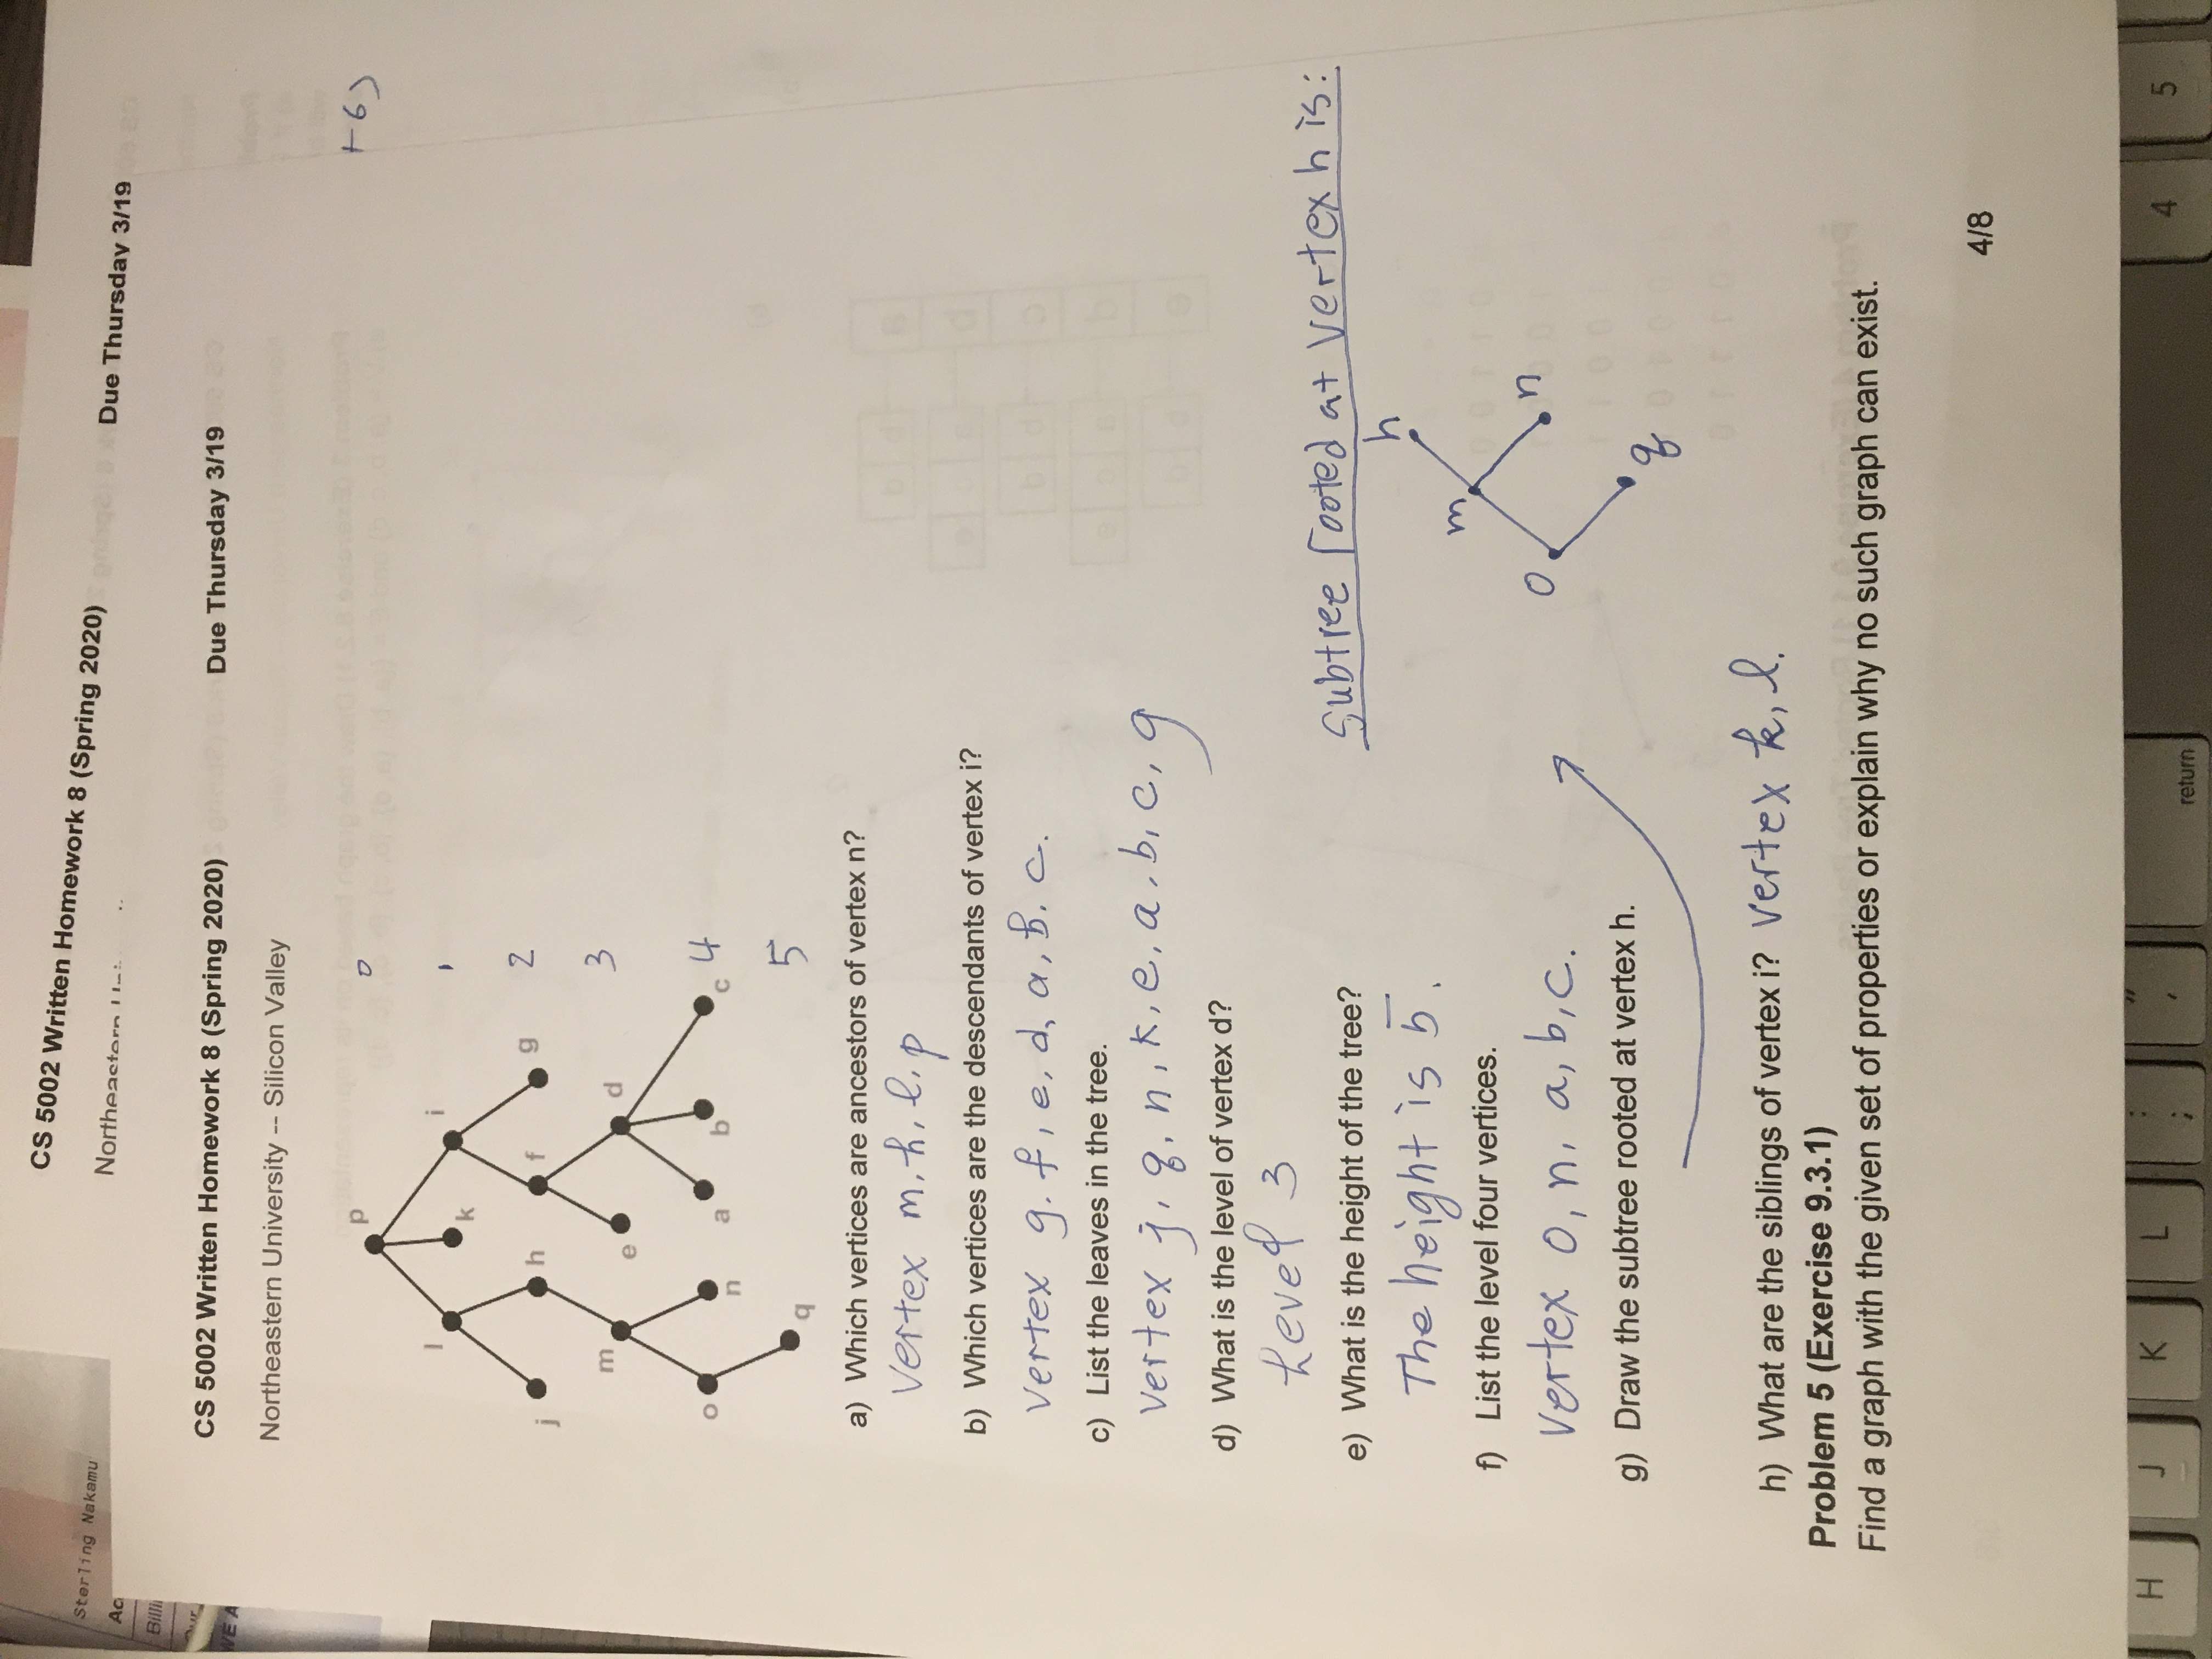 Sterling Nakamu
Ac
Billi
WE A
CS 5002 Written Homework 8 (Spring 2020)
Due Thursday 3/19
CS 5002 Written Homework 8 (Spring 2020)
Due Thursday 3/19
Northeastern University -- Silicon Valley
p
0
l
k
i
1
j
h
f
g
2
m
e
d
3
o
n
a
b
c
4
q
5
a) Which vertices are ancestors of vertex n?
Vertex m, h, l, p
b) Which vertices are the descendants of vertex i?
Vertex g, f, e, d, a, b, c.
c) List the leaves in the tree.
Vertex j, q, n, k, e, a, b, c, g
d) What is the level of vertex d?
Level 3
e) What is the height of the tree?
The height is 5.
f) List the level four vertices.
Vertex o, n, a, b, c.
g) Draw the subtree rooted at vertex h.
Subtree rooted at vertex h is:
h
m
n
o
q
h) What are the siblings of vertex i? Vertex k, l.
Problem 5 (Exercise 9.3.1)
Find a graph with the given set of properties or explain why no such graph can exist.
4/8
H J K L : ; " ' return 4 5